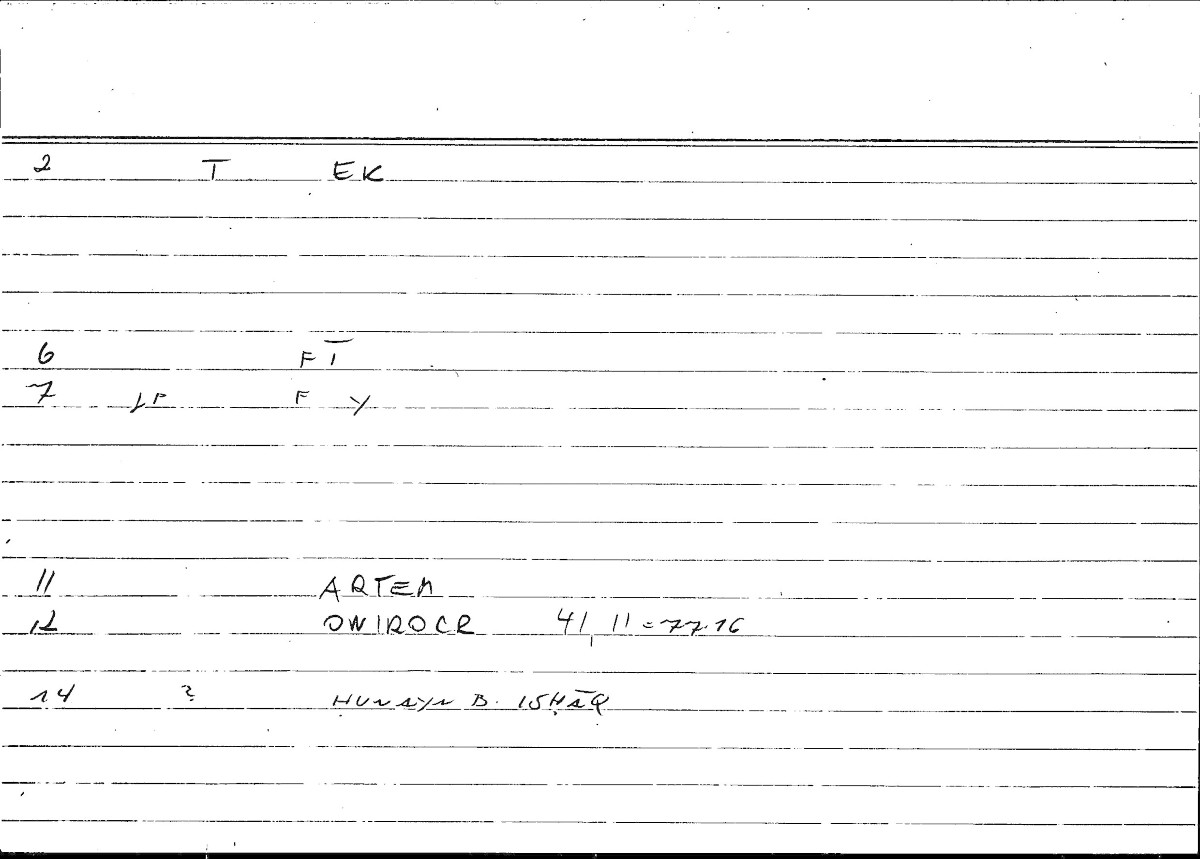 2 T EK
6 F T
7 F Y
11 ARTEM
12 ONIROCR 41, 11 = 77.16
14 ? ḤUNAYN B. ISḤĀQ